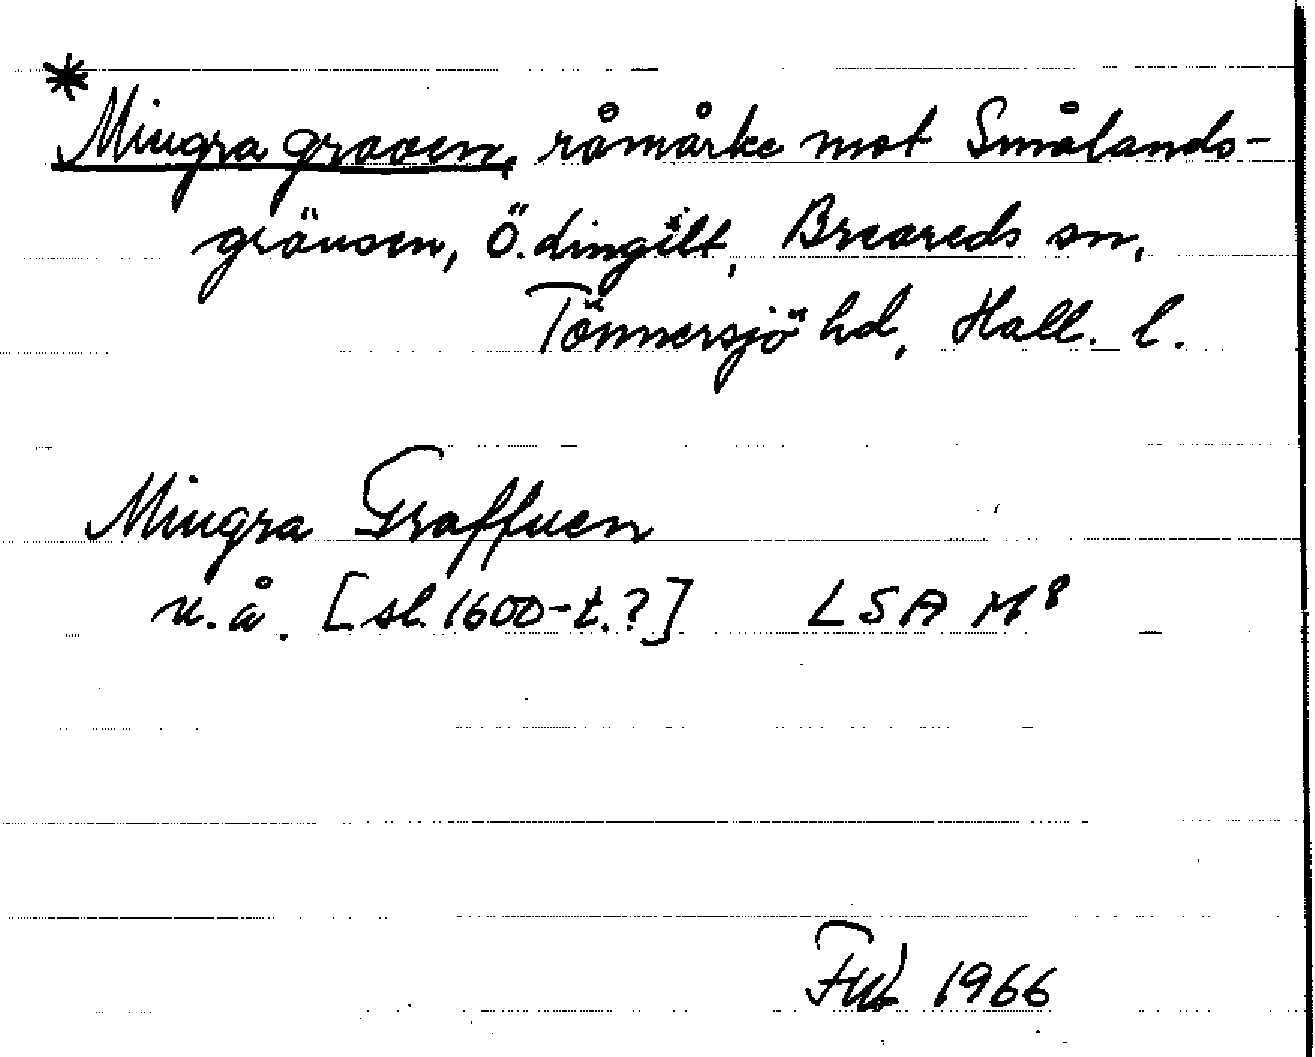 *Mingra graven, råmärke mot Smålands-
gränsen, Ö. Lingilt, Breareds sn,
Tönnersjö hd, Hall. l.
Mingra Graffuen
u. å. [sl. 1600-t.?] LSA M 8
1966